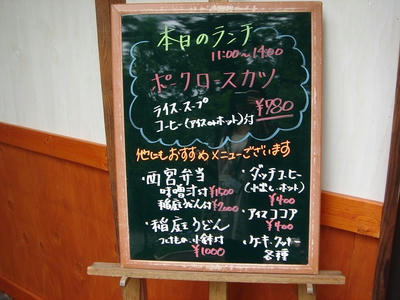 本日のランチ
11:00〜14:00
ポークロースカツ
ライス、スープ
コーヒー(アイスorホット)付
¥780
他にもおすすめメニューございます
・西宮弁当
味噌汁付¥1500
稲庭うどん付¥2000
・稲庭うどん
つけもの、小鉢付
¥1000
・ダッチコーヒー
(水出し・ホット)
¥400
・アイスココア
¥400
・ケーキ、クッキー
各種